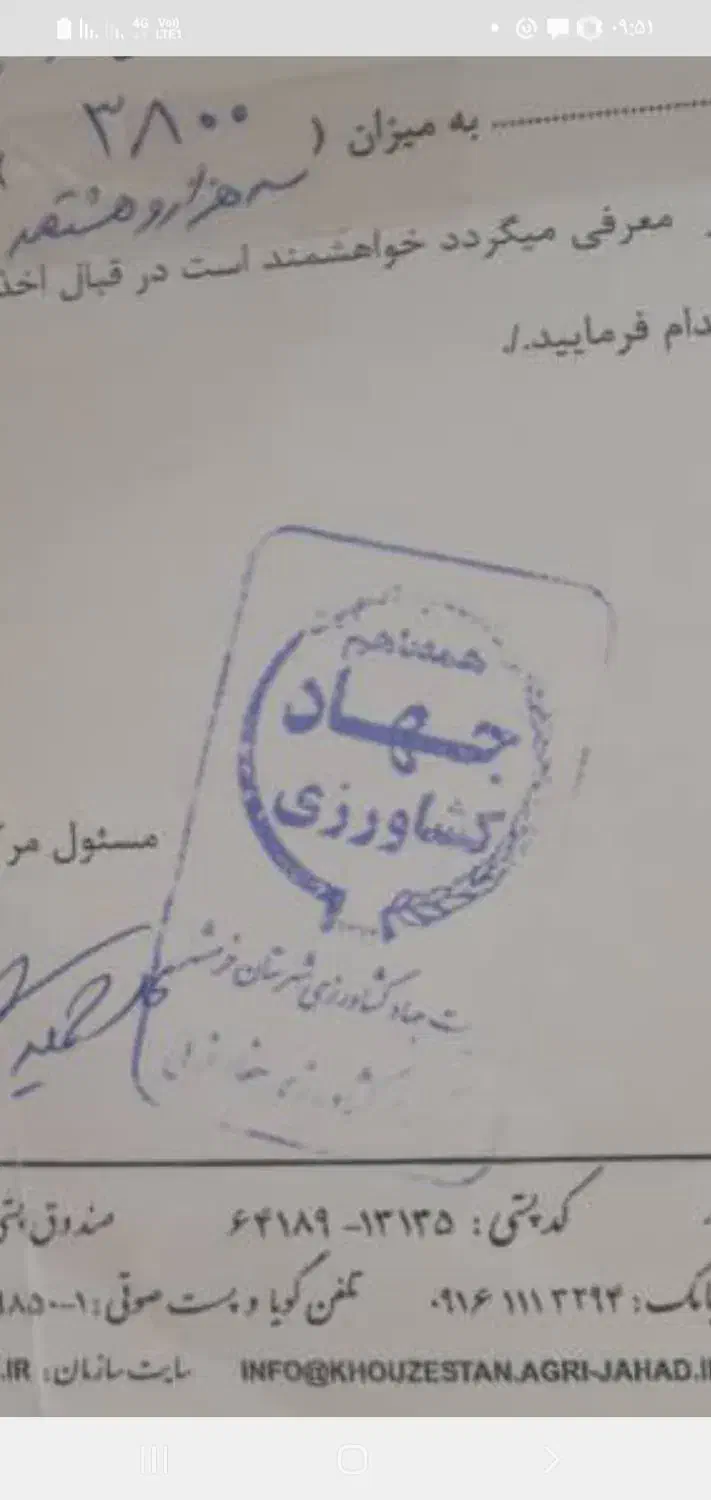 4G Vo) LTE1 ۰۹:۵۱
به میزان ( ۳۸۰۰ )
سه هزار و هشتصد
معرفی میگردد خواهشمند است در قبال اخذ
دام فرمایید./.
جهاد
کشاورزی
مسئول مر
ت جهاد کشاورزی شهرستان
کد پستی : ۱۳۱۳۵- ۶۴۱۸۹ صندوق پستی
: ۰۹۱۶ ۱۱۱ ۳۲۹۴ تلفن گویا و پست صوتی : ۱-۸۵۰۰
INFO@KHOUZESTAN.AGRI-JAHAD.I سایت سازمان: .IR